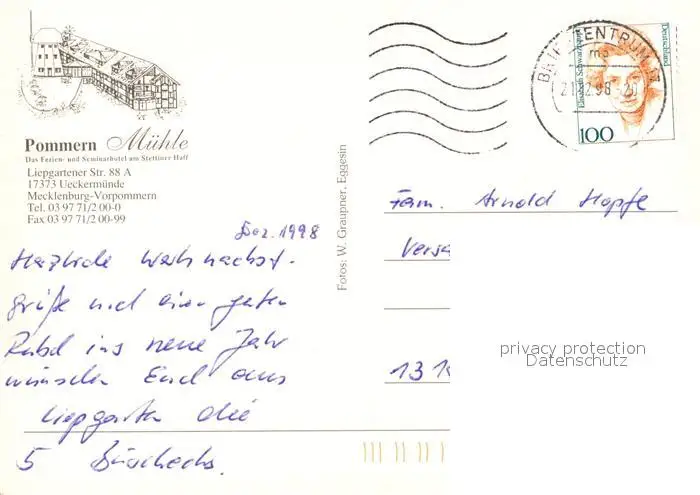 Pommern Mühle
Das Ferien- und Seminarhotel am Stettiner Haff
Liepgartener Str. 88 A
17373 Ueckermünde
Mecklenburg-Vorpommern
Tel. 03 97 71/2 00-0
Fax 03 97 71/2 00-99
Dez. 1998
Herzliche Weihnachst-
grüße und einen guten
Rutsch ins neue Jahr
wünschen Euch aus
Liepgarten die
5
Fotos: W. Graupner, Eggesin
BRIEFZENTRUM 17
ma
21.12.98-20
Deutschland
Elisabeth Schwarzhaupt
100
Fam. Arnold Hopfe
Versa
131
privacy protection
Datenschutz